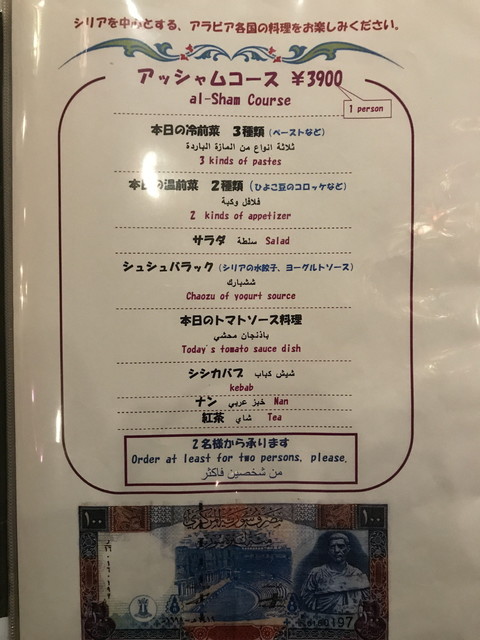 シリアを中心とする、アラビア各国の料理をお楽しみください。
アッシャムコース ￥3900
al-Sham Course
1 person
本日の冷前菜 3種類 (ペーストなど)
ثلاثة انواع من المازة الباردة
3 kinds of pastes
本日の温前菜 2種類 (ひよこ豆のコロッケなど)
فلافل وكبة
2 kinds of appetizer
サラダ سلطة Salad
シュシュバラック (シリアの水餃子、ヨーグルトソース)
ششبارك
Chaozu of yogurt source
本日のトマトソース料理
باذنجان محشي
Today's tomato sauce dish
シシカバブ شيش كباب
kebab
ナン خبز عربي Nan
紅茶 شاي Tea
2名様から承ります
Order at least for two persons, please.
من شخصين فاكثر
١٠٠ ١٠٠
مصرف سورية المركزي